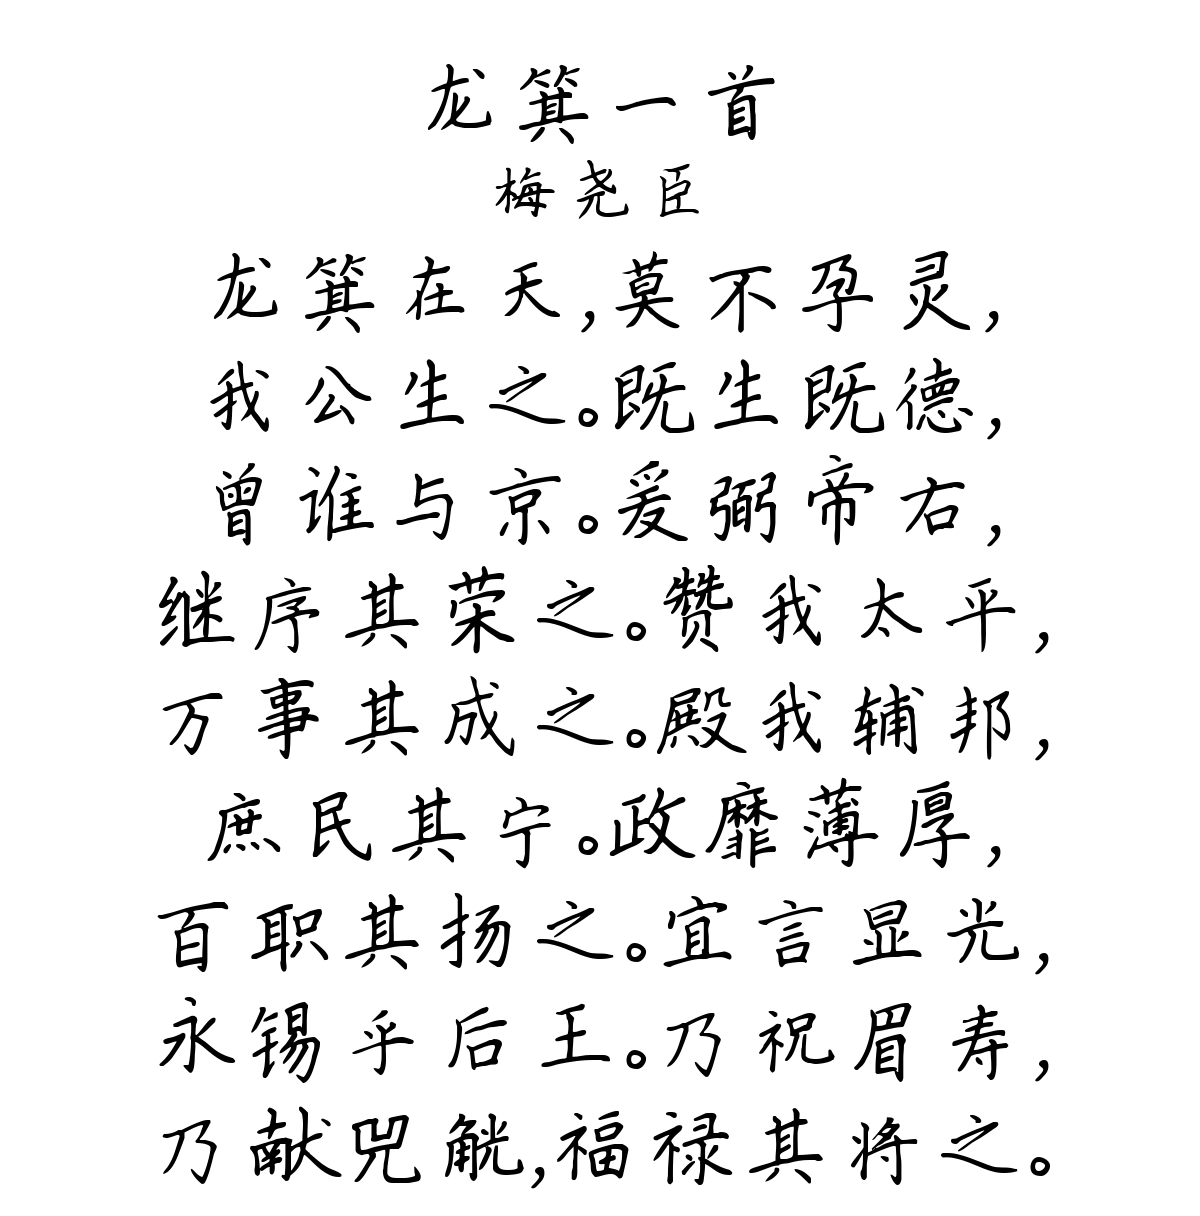 龙箕一首
梅尧臣
龙箕在天,莫不孕灵,
我公生之。既生既德,
曾谁与京。爰弼帝右,
继序其荣之。赞我太平,
万事其成之。殿我辅邦,
庶民其宁。政靡薄厚,
百职其扬之。宜言显光,
永锡乎后王。乃祝眉寿,
乃献兕觥,福禄其将之。